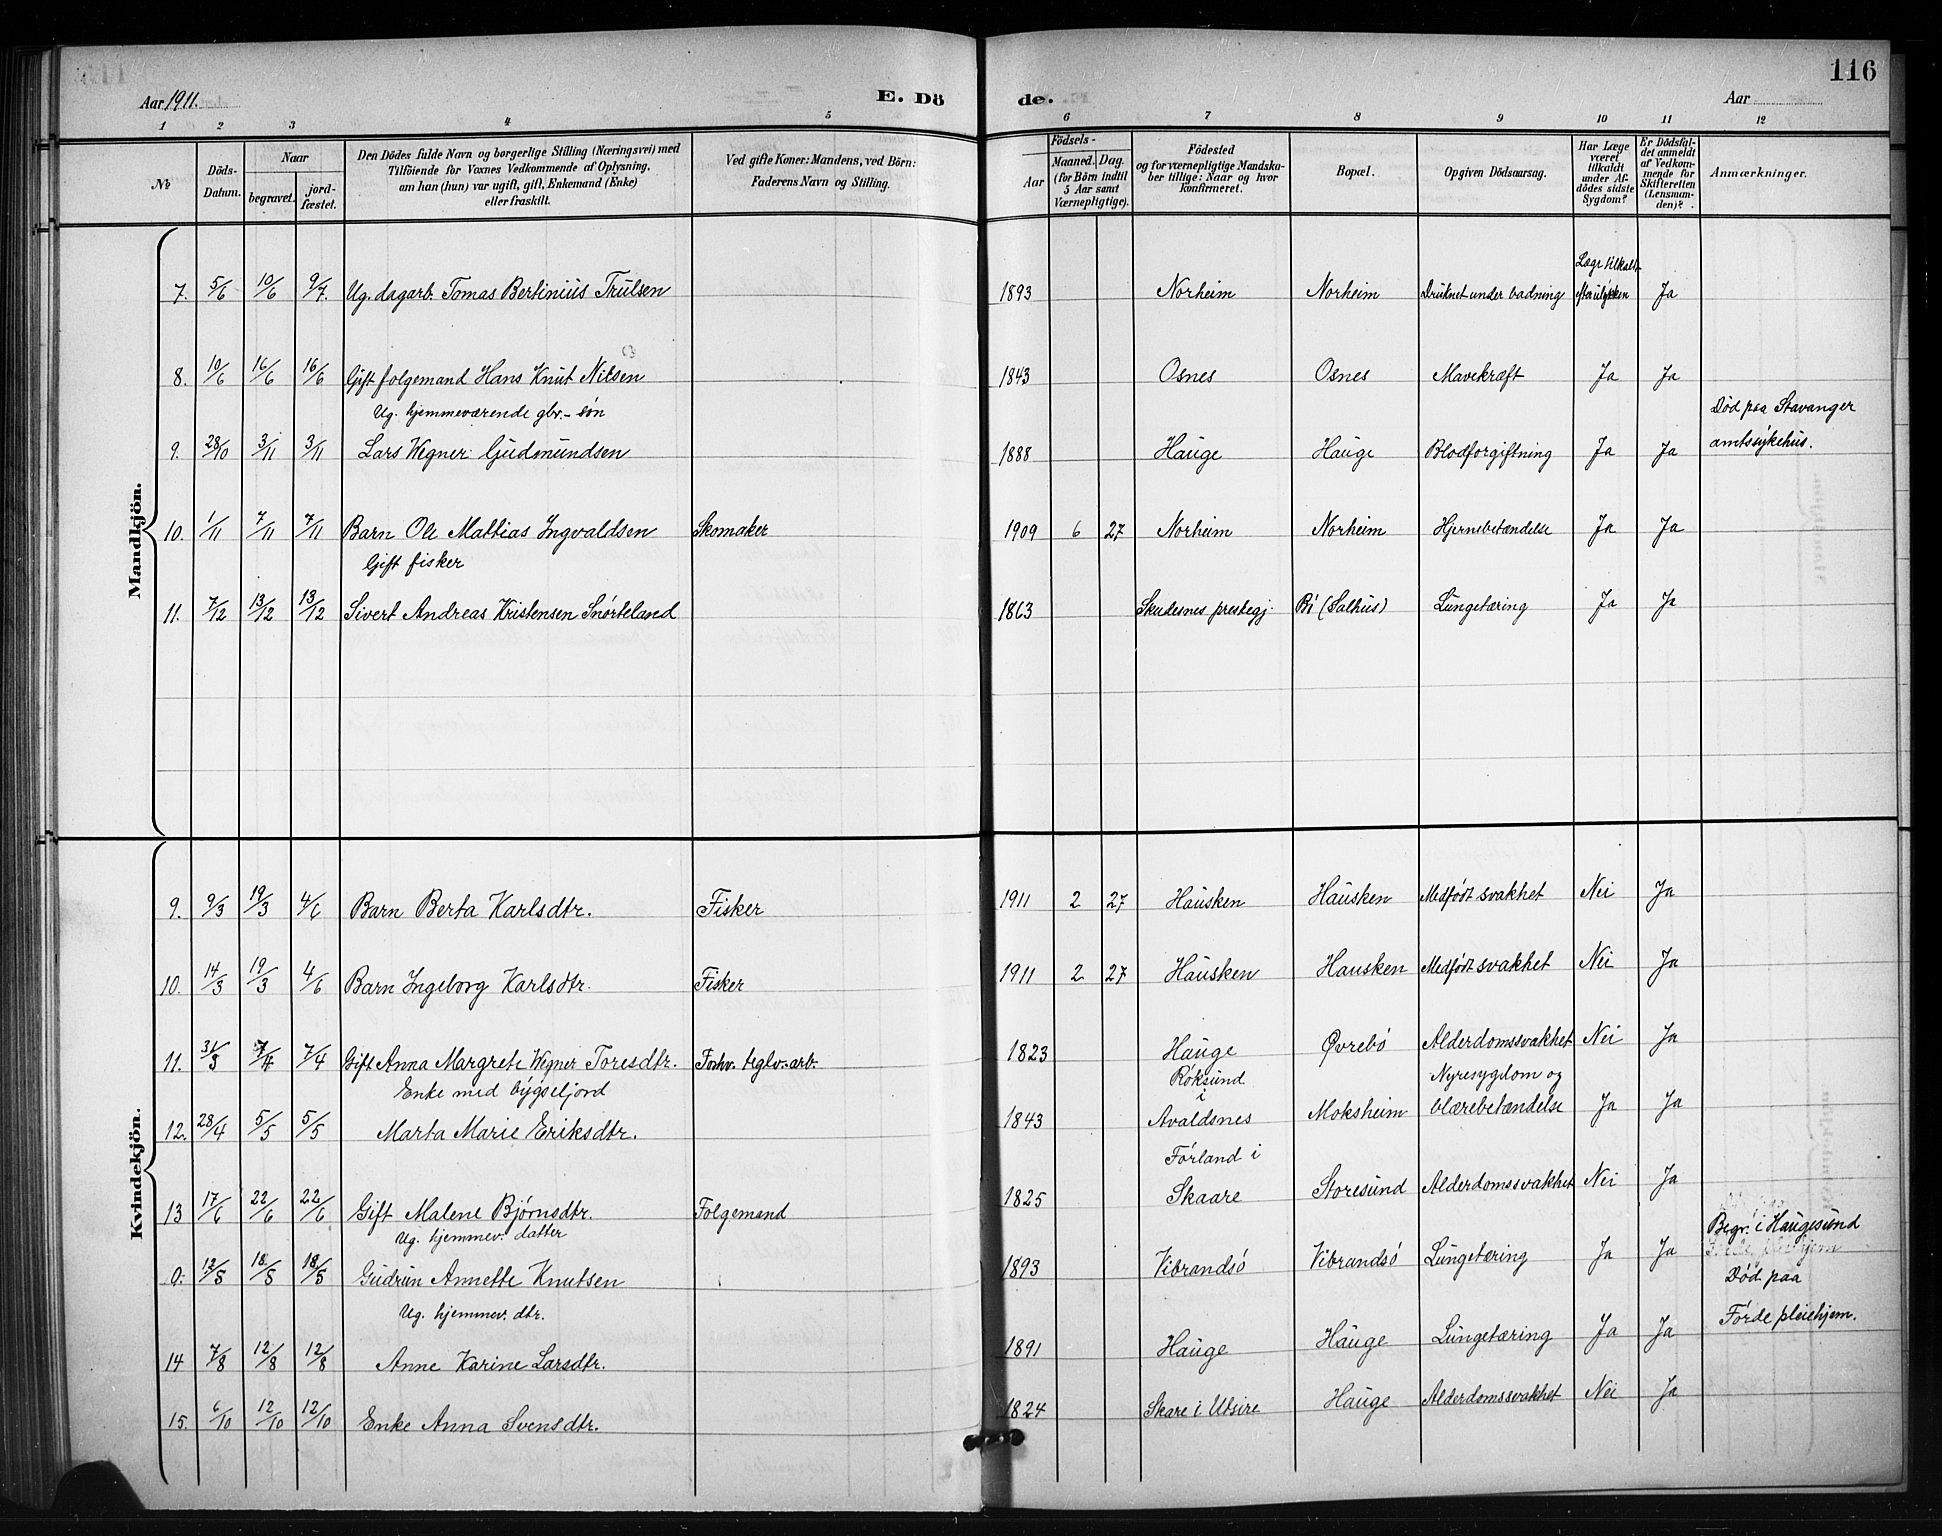 116
Aar 1911.
E. Dö de.
Aar
1 2 3 4 5 6 7 8 9 10 11 12
No
Döds-Datum.
Naar
begravet.
jord-fæstet.
Den Dödes fulde Navn og borgerlige Stilling (Næringsvei) med
Tilföiende for Voxnes Vedkommende af Oplysning,
om han (hun) var ugift, gift, Enkemand (Enke)
eller fraskilt.
Ved gifte Koner: Mandens, ved Börn:
Faderens Navn og Stilling.
Födsels-
Aar
Maaned. Dag.
(for Börn indtil
5 Aar samt
Værnepligtige).
Födested
og for værnepligtige Mandska-
ber tillige: Naar og hvor
konfirmeret.
Bopæl.
Opgiven Dödsaarsag.
Har Læge
været
tilkaldt
under Af-
dödes sidste
Sygdom?
Er Dödsfal-
det anmeldt
af Vedkom-
mende for
Skifteretten
(Lensman-
den)?
Anmærkninger.
Mandkjön.
7. 5/6 10/6 9/7. Ug. dagarb. Tomas Bertinius Trulsen 1893 Norheim Norheim Druknet under badning Læge tilkaldt efter ulykken Ja
8. 10/6 16/6 16/6 Gift folgemand Hans Knut Nilsen 1843 Osnes Osnes Mavekræft Ja Ja
Ug. hjemmeværende gbr.-søn Død paa Stavanger
9. 28/10 3/11 3/11 Lars Wegner Gudmundsen 1888 Hauge Hauge Blodforgiftning Ja Ja amtssykehus.
10. 1/11 7/11 7/11 Barn Ole Mattias Ingvaldsen Skomaker 1909 6 27 Norheim Norheim Hjernebetændelse Ja Ja
Gift fisker
11. 7/12 13/12 13/12 Sivert Andreas Kristensen Snørteland 1863 Skudesnes prestegj. Bø (Salhus) Lungetæring Ja Ja
Kvindekjön.
9. 9/3 19/3 4/6 Barn Berta Karlsdtr. Fisker 1911 2 27 Hausken Hausken Medfødt svakhet Nei Ja
10. 14/3 19/3 4/6 Barn Ingeborg Karlsdtr. Fisker 1911 2 27 Hausken Hausken Medfødt svakhet Nei Ja
11. 31/3 7/4 7/4 Gift Anna Margrete Wegner Toresdtr. Forhv. teglv.-arb. 1823 Hauge Øvrebø Alderdomssvakhet Nei Ja
Enke med bygseljord Roksund i Nyresygdom og
12. 28/4 5/5 5/5 Marta Marie Eriksdtr. 1843 Avaldsnes Moksheim blærebetændelse Ja Ja
Førland i
13 17/6 22/6 22/6 Gift Malene Bjørnsdtr. Folgemand 1825 Skaare Storesund Alderdomssvakhet Nei Ja
Ug. hjemmev. datter Begr. i Haugesund
0. 12/5 18/5 18/5 Gudrun Annette Knutsen 1893 Vibrandsø Vibrandsø Lungetæring Ja Ja
Ug. hjemmev. dtr. Død paa
14 7/8 12/8 12/8 Anne Karine Larsdtr. 1891 Hauge Hauge Lungetæring Ja Ja Førde pleiehjem.
15. 6/10 12/10 12/10 Enke Anna Svensdtr. 1824 Skare i Utsire Hauge Alderdomssvakhet Nei Ja